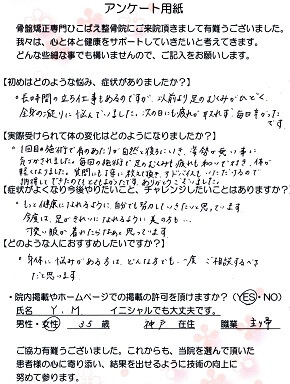 アンケート用紙
骨盤矯正専門ひこばえ整骨院にご来院頂きまして有難うございます。
我々は、心と体と健康をサポートしていきたいと考えてきます。
どんな些細な事でも構いませんので、ご記入をお願いします。
【初めはどのような悩み、症状がありましたか？】
・長時間の立ち仕事もあるのですが、以前より足のむくみがひどく、
全身の疲りに悩んでいました。次の日にも疲れが
【実際受けられて体の変化はどのようになりましたか？】
・1回目の施術で肩のあたりが自然と後ろにいき、姿勢が
毎回の施術で足のむくみも疲れも
ありがとうございました。
【症状がよくなり今後やりたいこと、チャレンジしたいことはありますか？】
・もっと健康になれるように、自分でも努力していきたいと思っています
今度は、足がきれいになれるように
可愛い服が着れたらなぁと思っています
【どのような人におすすめしたいですか？】
・身体に悩みがある方は、どんな方でも、一度ご相談するべき
だと思います
・院内掲載やホームページでの掲載の許可を頂けますか？（YES・NO）
氏名 Y.M イニシャルでも大丈夫です。
男性・女性 35歳 神戸 在住 職業 主婦
ご協力有難うございました。これからも、当院を選んで頂いた
患者様の心に寄り添い、結果を出せるように技術の向上に
努めて参ります。